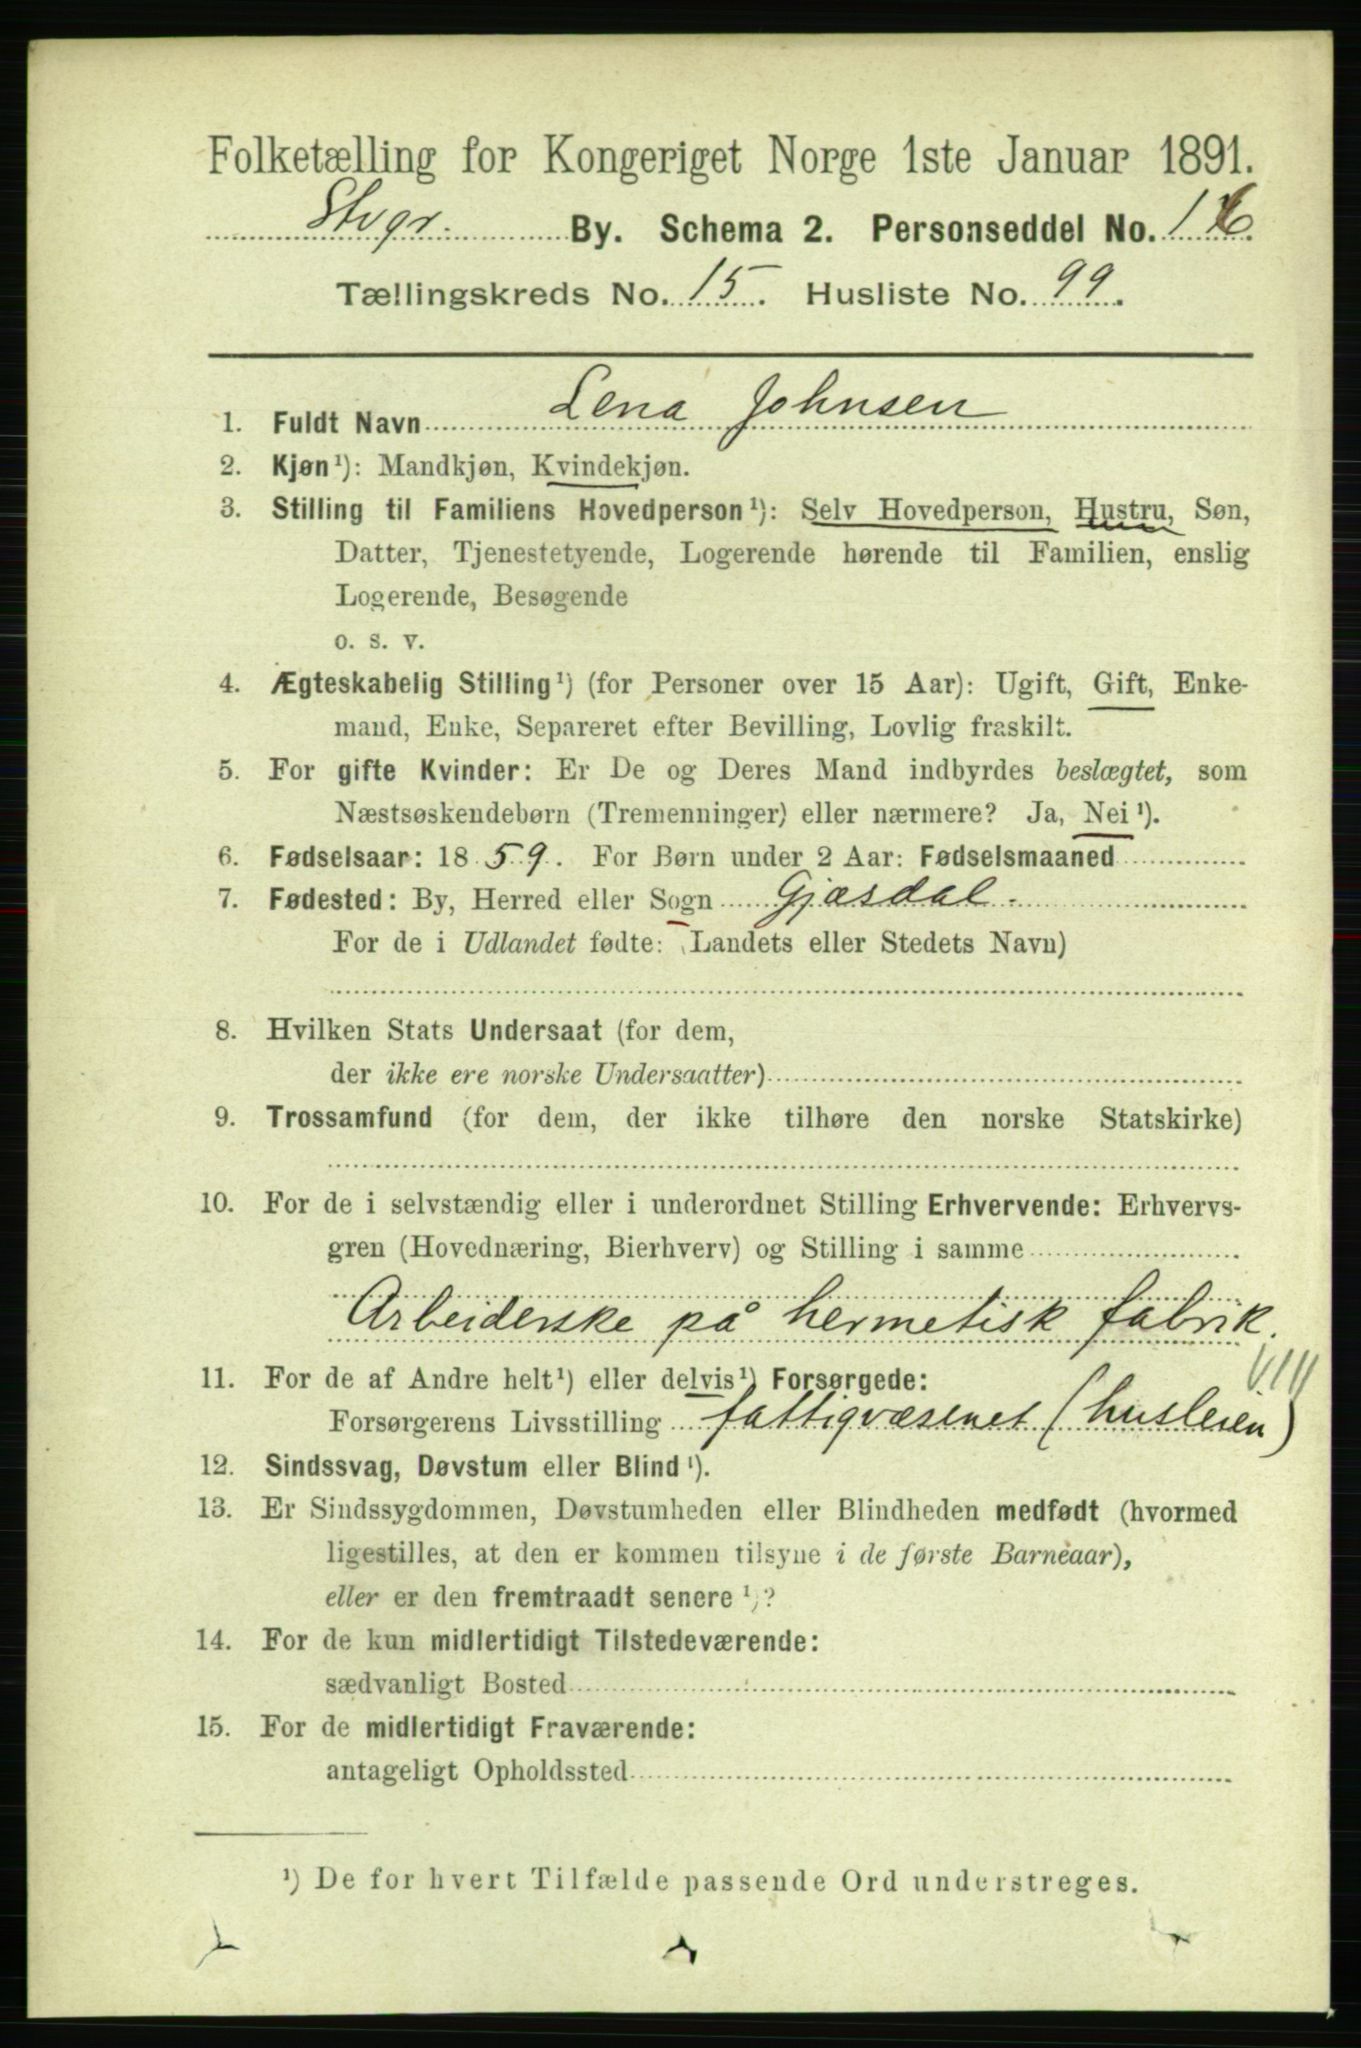 Folketælling for Kongeriget Norge 1ste Januar 1891.
Stvgr. By. Schema 2. Personseddel No. 16.
Tællingskreds No. 15. Husliste No. 99.
1. Fuldt Navn Lena Johnsen
2. Kjøn¹): Mandkjøn, Kvindekjøn.
3. Stilling til Familiens Hovedperson¹): Selv Hovedperson, Hustru, Søn,
Datter, Tjenestetyende, Logerende hørende til Familien, enslig
Logerende, Besøgende
o. s. v.
4. Ægteskabelig Stilling¹) (for Personer over 15 Aar): Ugift, Gift, Enke-
mand, Enke, Separeret efter Bevilling, Lovlig fraskilt.
5. For gifte Kvinder: Er De og Deres Mand indbyrdes beslægtet, som
Næstsøskendebørn (Tremenninger) eller nærmere? Ja, Nei¹).
6. Fødselsaar: 1859. For Børn under 2 Aar: Fødselsmaaned
7. Fødested: By, Herred eller Sogn Gjæsdal.
For de i Udlandet fødte: (Landets eller Stedets Navn)
8. Hvilken Stats Undersaat (for dem,
der ikke ere norske Undersaatter)
9. Trossamfund (for dem, der ikke tilhøre den norske Statskirke)
10. For de i selvstændig eller i underordnet Stilling Erhvervende: Erhvervs-
gren (Hovednæring, Bierhverv) og Stilling i samme
Arbeiderske på hermetisk fabrik.
VIII
11. For de af Andre helt¹) eller delvis¹) Forsørgede:
Forsørgerens Livsstilling fattigvæsenet (husleien)
12. Sindssvag, Døvstum eller Blind¹).
13. Er Sindssygdommen, Døvstumheden eller Blindheden medfødt (hvormed
ligestilles, at den er kommen tilsyne i de første Barneaar),
eller er den fremtraadt senere¹)?
14. For de kun midlertidigt Tilstedeværende:
sædvanligt Bosted
15. For de midlertidigt Fraværende:
antageligt Opholdssted
¹) De for hvert Tilfælde passende Ord understreges.